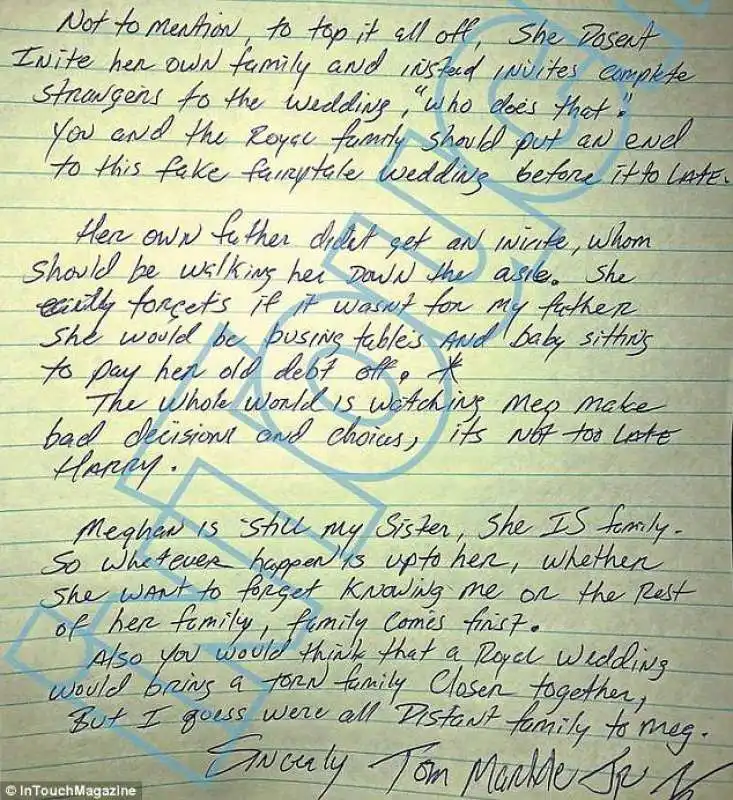 Not to mention, to top it all off, She Dosent
Inite her own family and instead invites complete
strangers to the wedding, "who does that".
You and the Royal family should put an end
to this fake fairytale wedding before it to LATE.
Her own father didnt get an inivite, whom
should be walking her Down the asile. She
forgets if it wasnt for my father
She would be busing tables AND baby sitting
to pay her old debt off. *
The whole world is watching Meg make
bad decisions and choices, its NOT too LATE
HARRY.
Meghan is still my Sister, She IS family.
So whatever happen is upto her, whether
She want to forget Knowing me or the Rest
of her family, family comes first.
Also you would think that a Royal wedding
would bring a torn family Closer together,
But I guess were all Distant family to Meg.
Sincerly Tom Markle Jr
INTOUCH
© InTouchMagazine